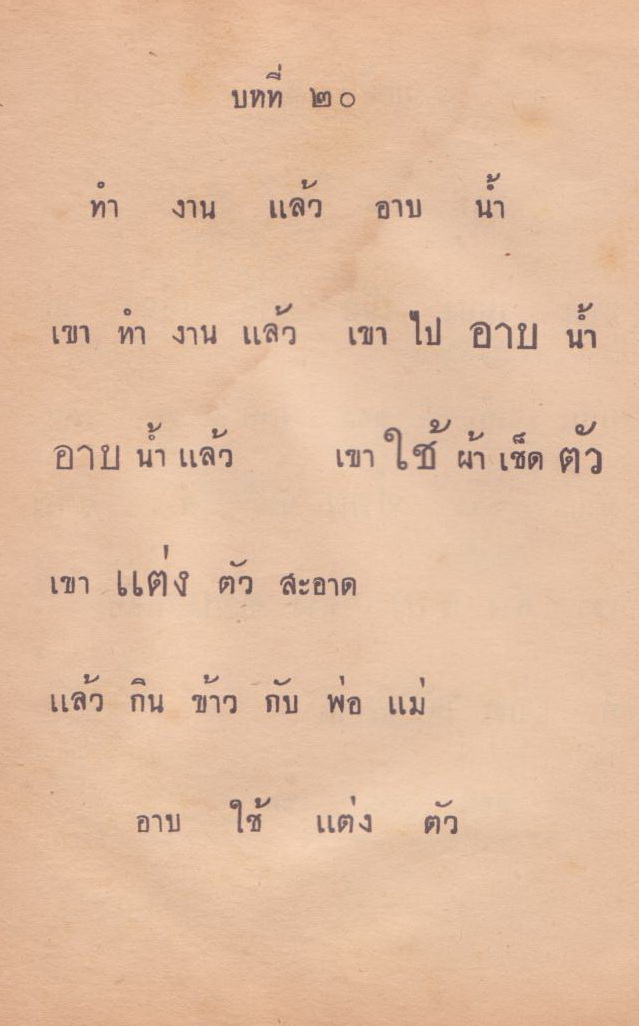 บทที่ ๒๐
ทำ งาน แล้ว อาบ น้ำ
เขา ทำ งาน แล้ว เขา ไป อาบ น้ำ
อาบ น้ำ แล้ว เขา ใช้ ผ้า เช็ด ตัว
เขา แต่ง ตัว สะอาด
แล้ว กิน ข้าว กับ พ่อ แม่
อาบ ใช้ แต่ง ตัว